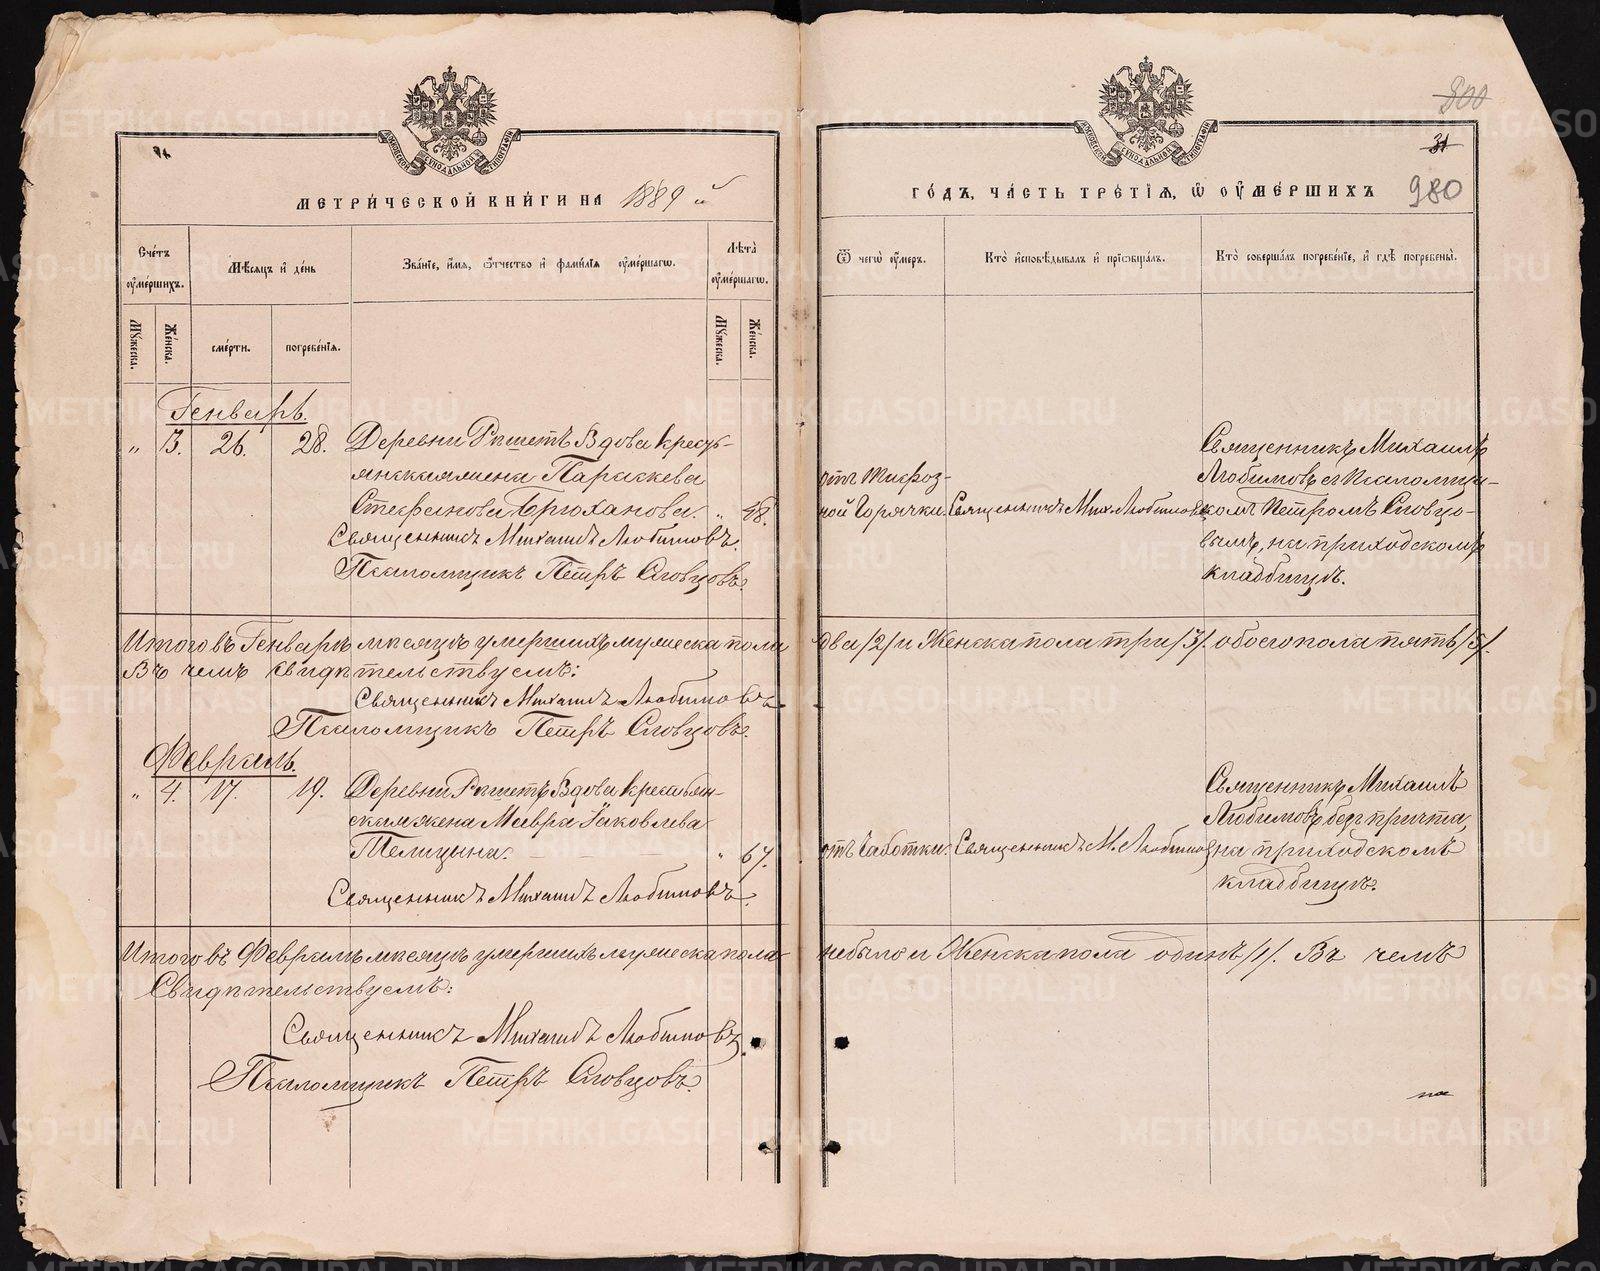 МЕТРИ́ЧЕСКОЙ КНИ́ГИ НА 1889 й
Сче́тъ ᲂу҆ме́ршихъ.
Мѣ́сяцъ и҆ де́нь
Зва́нїе, и҆́мя, ѻ҆́тчество и҆ фами́лїя ᲂу҆ме́ршагѡ.
Лѣ́та ᲂу҆ме́ршагѡ.
Мꙋ́жеска.
Же́нска.
сме́рти.
погребе́нїя.
Мꙋ́жеска.
Же́нска.
Генварь.
„ 3. 26. 28. Деревни Рѣшетъ Вдова крестъ-
янская жена Параскева
Стефанова Брюханова. „ 48.
Священникъ Михаилъ Любимовъ.
Псаломщикъ Петръ Словцовъ.
Итого въ Генварѣ мѣсяцѣ умершихъ мужеска пола
Въ чемъ свидѣтельствуемъ:
Священникъ Михаилъ Любимовъ
Псаломщикъ Петръ Словцовъ.
Февраль.
„ 4. 17. 19. Деревни Рѣшетъ Вдова крестьян-
ская жена Мавра Іаковлева
Телицына. „ 67.
Священникъ Михаилъ Любимовъ.
Итого въ Февралѣ мѣсяцѣ умершихъ мужеска пола
Свидѣтельствуемъ:
Священникъ Михаилъ Любимовъ.
Псаломщикъ Петръ Словцовъ.
800
31
ГО́ДЪ, ЧА́СТЬ ТРЕ́ТЇЯ, Ѽ ОУ҆МЕ́РШИХЪ 980
Ѿ чегѡ̀ ᲂу҆́меръ.
Кто̀ и҆сповѣ́дывалъ и҆ прїѻбща́лъ.
Кто̀ соверша́лъ погребе́нїе, и҆ гдѣ̀ погребены̀.
отъ тифоз-
ной горячки.
Священникъ Мих. Любимовъ
Священникъ Михаилъ
Любимовъ съ Псаломщи-
комъ Петромъ Словцо-
вымъ, на приходскомъ
кладбищѣ.
два /2/ и Женска пола три /3/. обоего пола пять /5/.
отъ чахотки.
Священникъ М. Любимовъ
Священникъ Михаилъ
Любимовъ безъ причта,
на приходскомъ
кладбищѣ.
не было и Женска пола одинъ /1/. Въ чемъ
METRIKI.GASO-URAL.RU